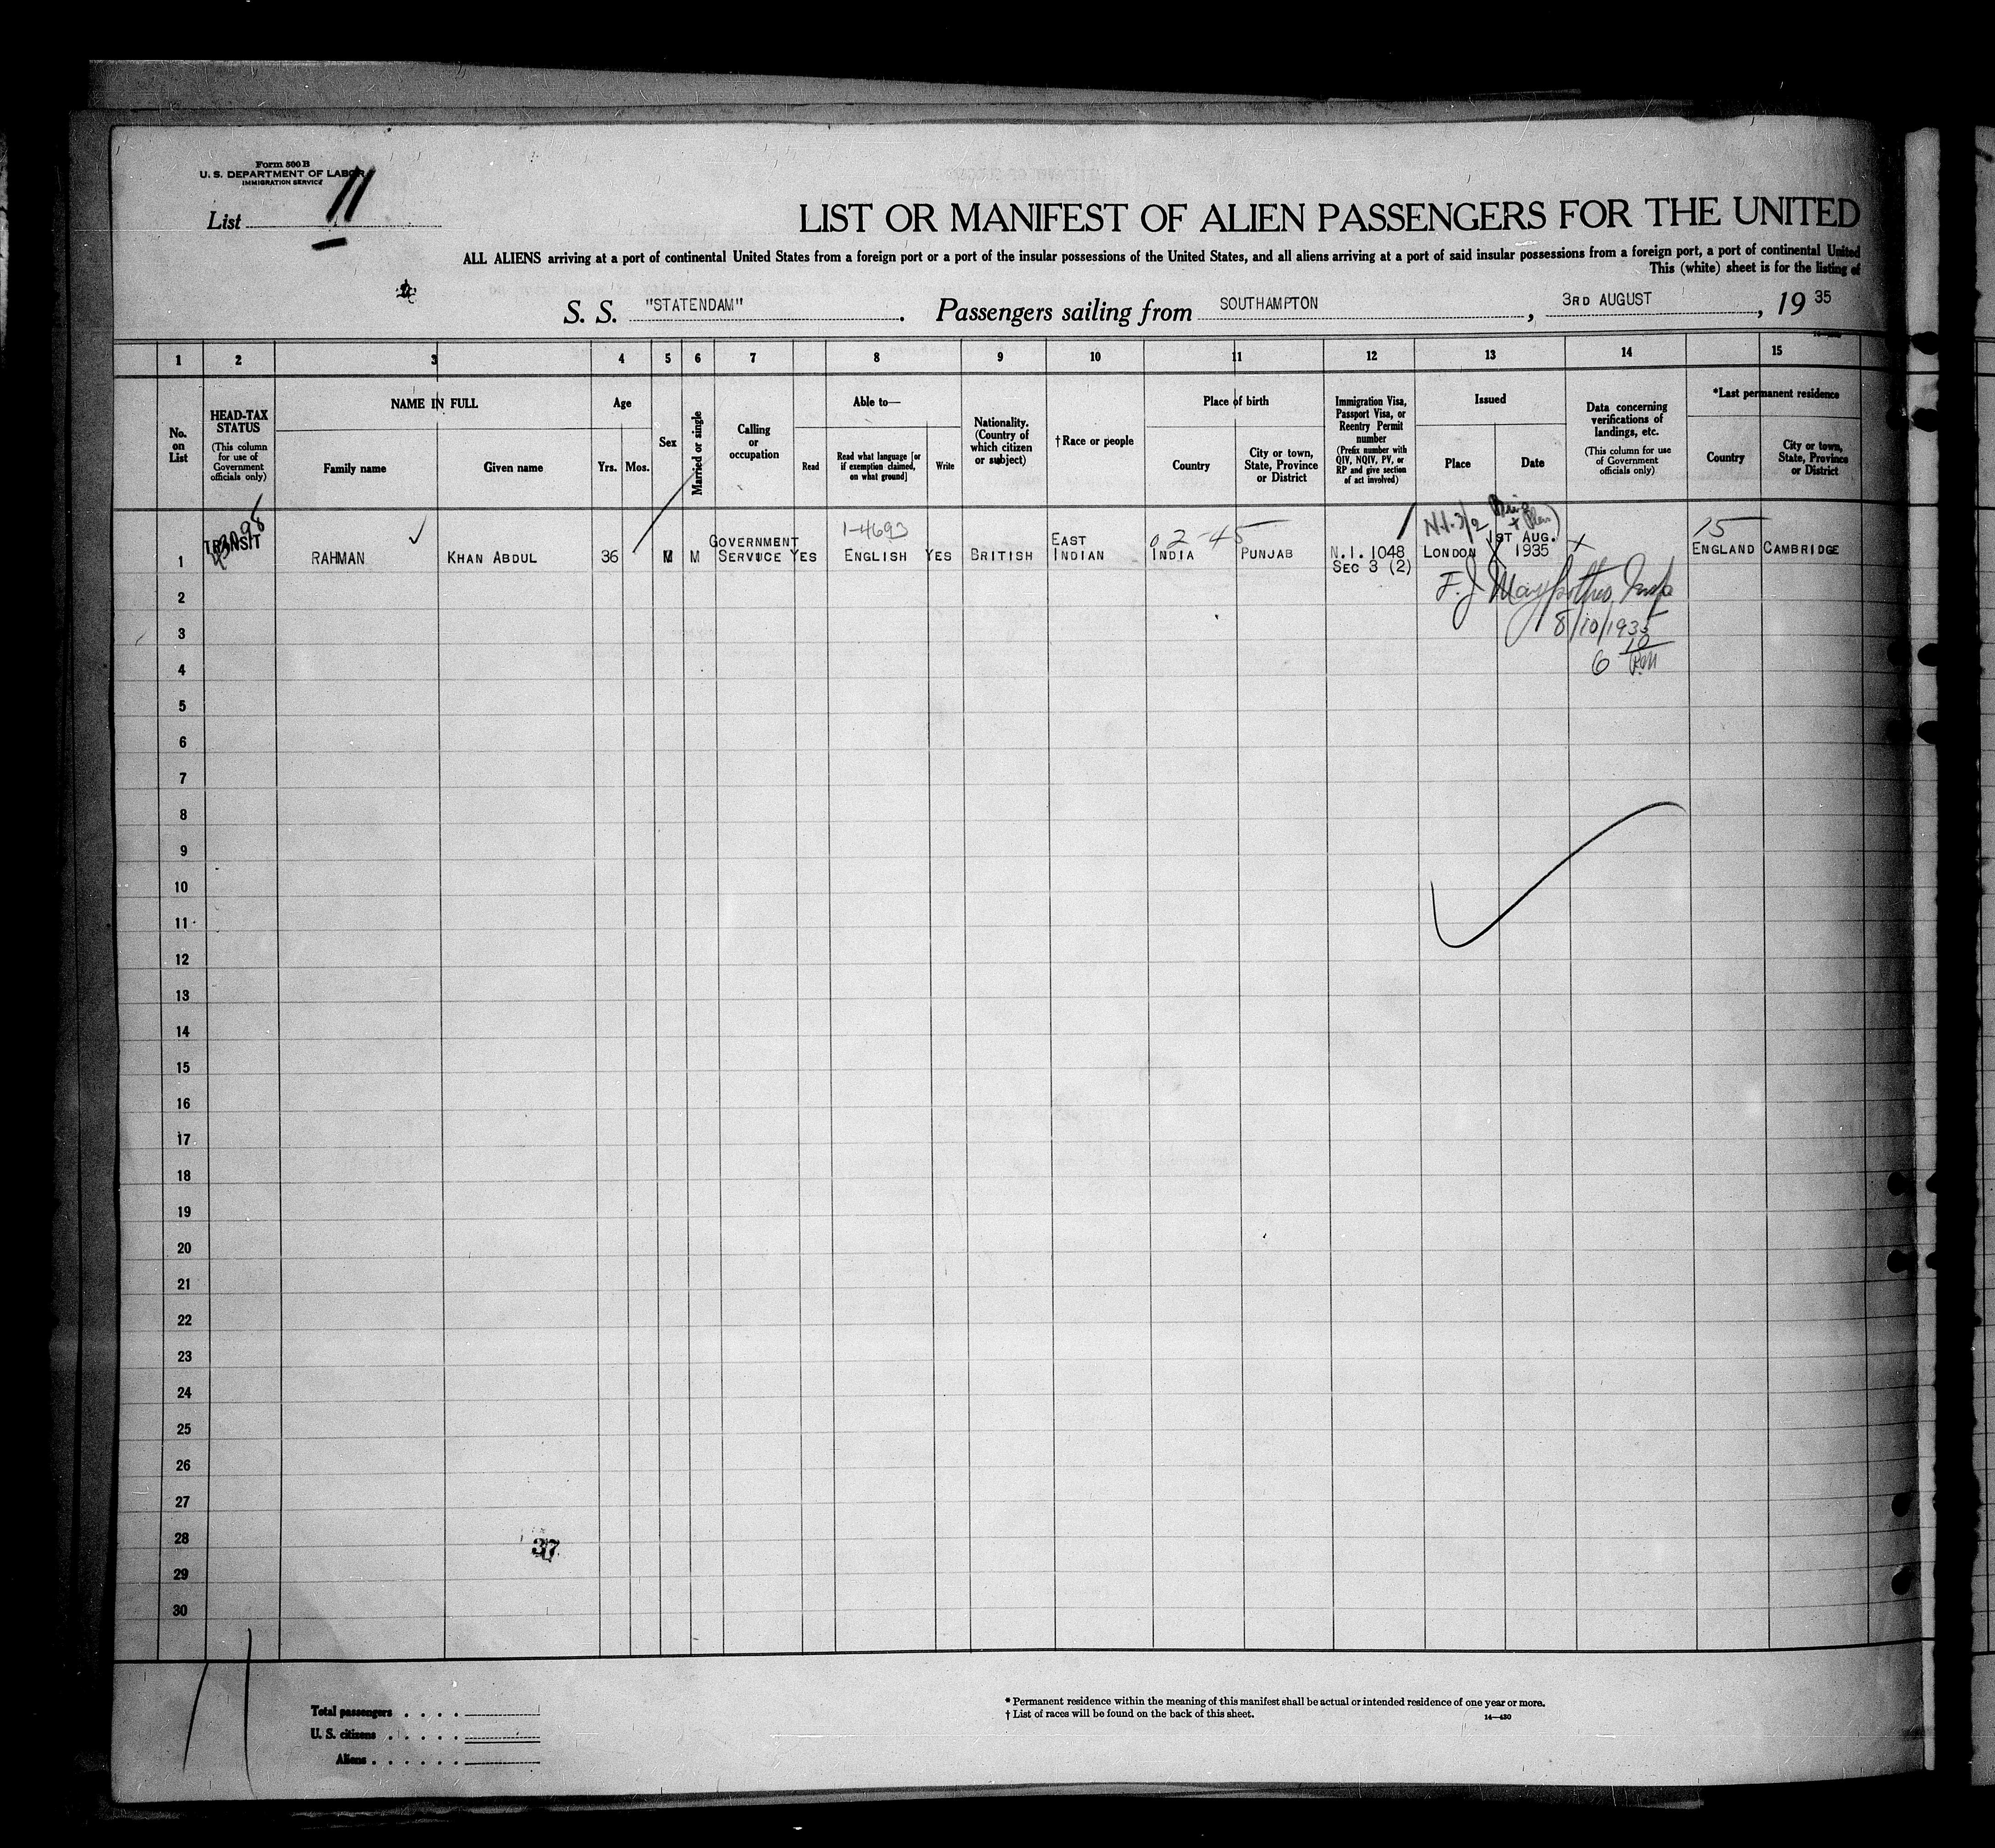 Form 500 B
U. S. DEPARTMENT OF LABOR
IMMIGRATION SERVICE
List 11
LIST OR MANIFEST OF ALIEN PASSENGERS FOR THE UNITED
ALL ALIENS arriving at a port of continental United States from a foreign port or a port of the insular possessions of the United States, and all aliens arriving at a port of said insular possessions from a foreign port, a port of continental United
This (white) sheet is for the listing of
S. S. "STATENDAM". Passengers sailing from SOUTHAMPTON, 3RD AUGUST, 19 35
1 2 3 4 5 6 7 8 9 10 11 12 13 14 15
No. on List
HEAD-TAX STATUS
(This column for use of Government officials only)
NAME IN FULL
Family name
Given name
Age
Yrs. Mos.
Sex
Married or single
Calling or occupation
Able to—
Read
Read what language [or if exemption claimed, on what ground]
Write
Nationality. (Country of which citizen or subject)
†Race or people
Place of birth
Country
City or town, State, Province or District
Immigration Visa, Passport Visa, or Reentry Permit number
(Prefix number with QIV, NQIV, PV, or RP and give section of act involved)
Issued
Place
Date
Data concerning verifications of landings, etc.
(This column for use of Government officials only)
*Last permanent residence
Country
City or town, State, Province or District
1-4693
02-45
N.I. 3/2
15
1 TRANSIT RAHMAN KHAN ABDUL 36 M M GOVERNMENT SERVICE YES ENGLISH YES BRITISH EAST INDIAN INDIA PUNJAB N.I. 1048 SEC 3 (2) LONDON 1ST AUG. 1935 ENGLAND CAMBRIDGE
2
8/10/1935
3
4
5
6
7
8
9
10
11
12
13
14
15
16
17
18
19
20
21
22
23
24
25
26
27
28
37
29
30
11
Total passengers . . . .
U. S. citizens . . . . .
Aliens . . . . . .
* Permanent residence within the meaning of this manifest shall be actual or intended residence of one year or more.
† List of races will be found on the back of this sheet.
14—430